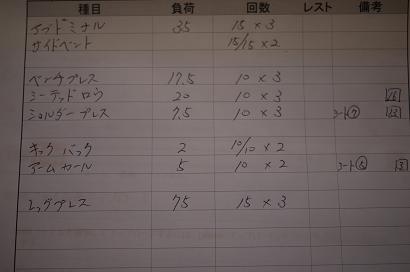 種目 負荷 回数 レスト 備考
アブドミナル 35 15 × 3
サイドベント 15/15 × 2
ベンチプレス 17.5 10 × 3
シーテッドロウ 20 10 × 3
ショルダープレス 7.5 10 × 3 シート⑦
キックバック 2 10/10 × 2
アームカール 5 10 × 2 シート
レッグプレス 75 15 × 3